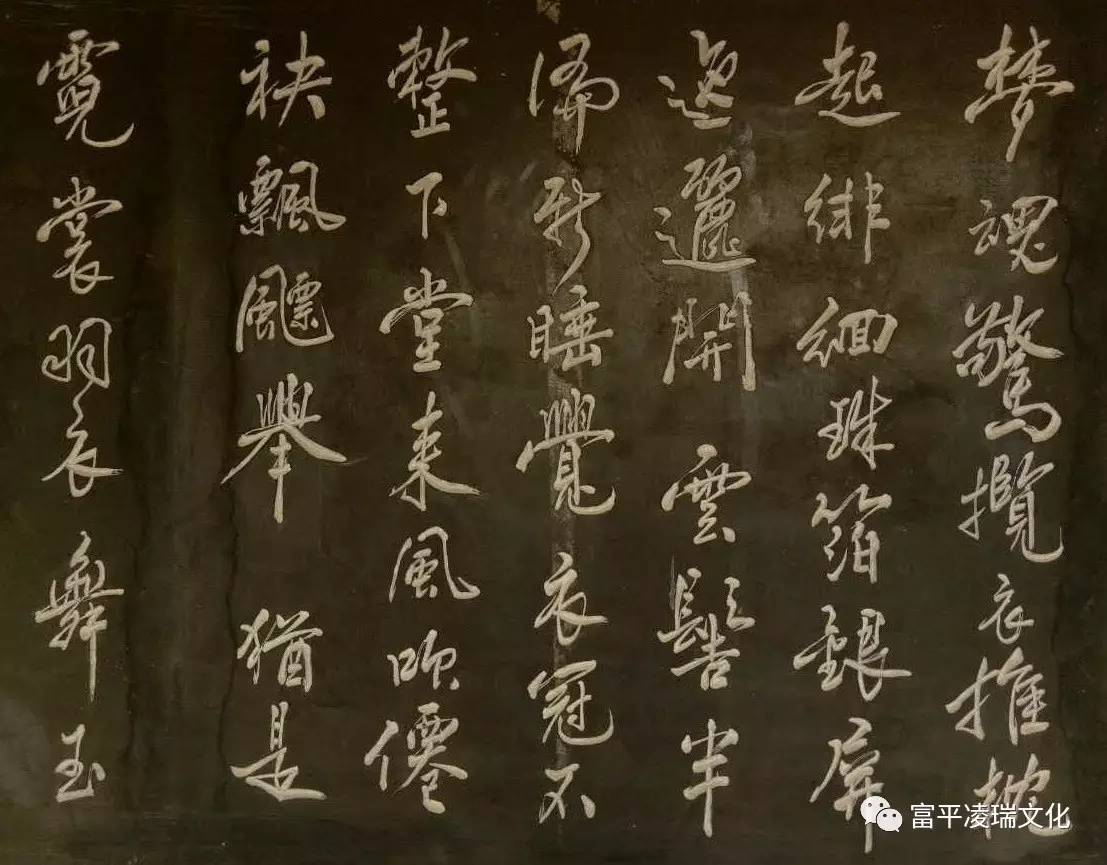 梦魂驚攬衣推枕
起徘徊珠箔銀屏
迤邐開雲鬢半
偏新睡覺衣冠不
整下堂来風吹僊
袂飄飃舉猶是
霓裳羽衣舞玉
富平凌瑞文化